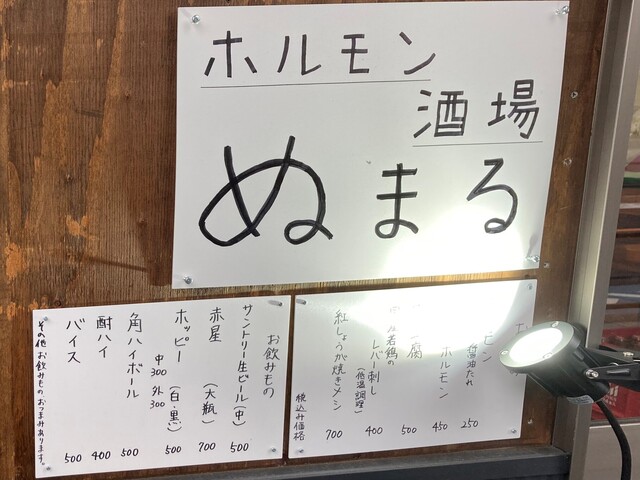 ホルモン
酒場
ぬまる
お飲みもの
サントリー生ビール(中) 500
赤星 (大瓶) 700
ホッピー (白・黒) 500
中300 外300
角ハイボール 500
酎ハイ 400
バイス 500
その他お飲みもの、おつまみあります。
醤油たれ 250
ホルモン 450
腐 500
若鶏の
レバー刺し 400
(低温調理)
紅しょうが焼きメシ 700
税込み価格